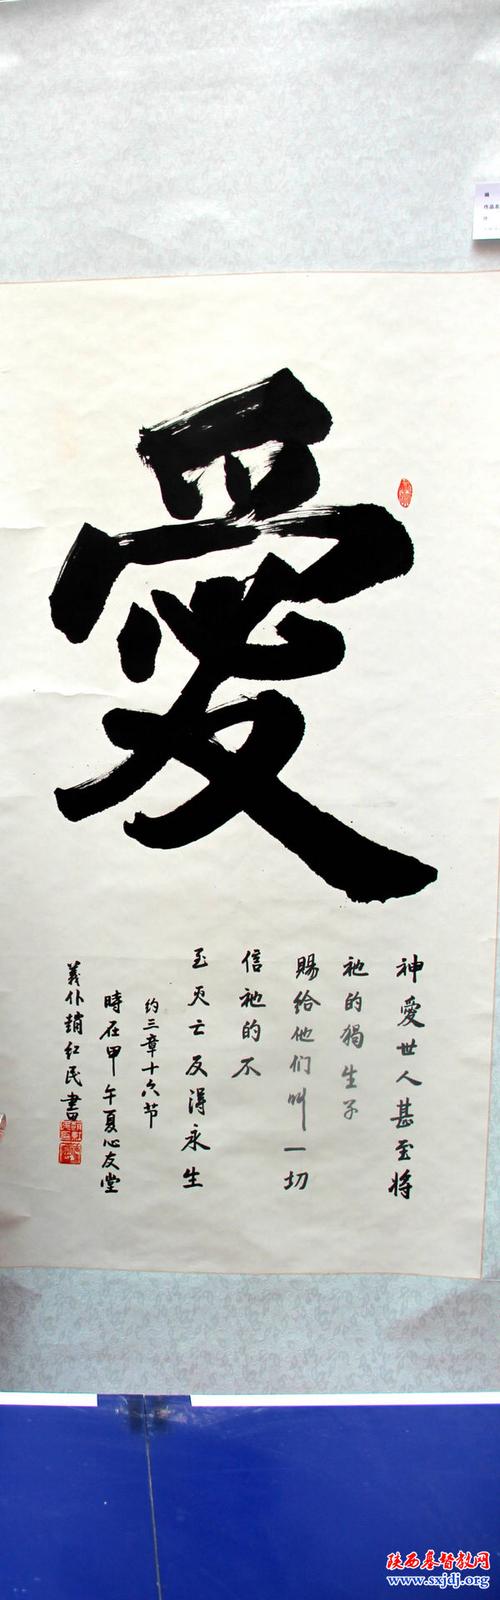 愛
神愛世人甚至将
祂的獨生子
賜给他们叫一切
信祂的不
至灭亡反得永生
约三章十六节
時在甲午夏心友堂
義仆趙红民書
作品名
陕西基督教网
www.sxjdj.org